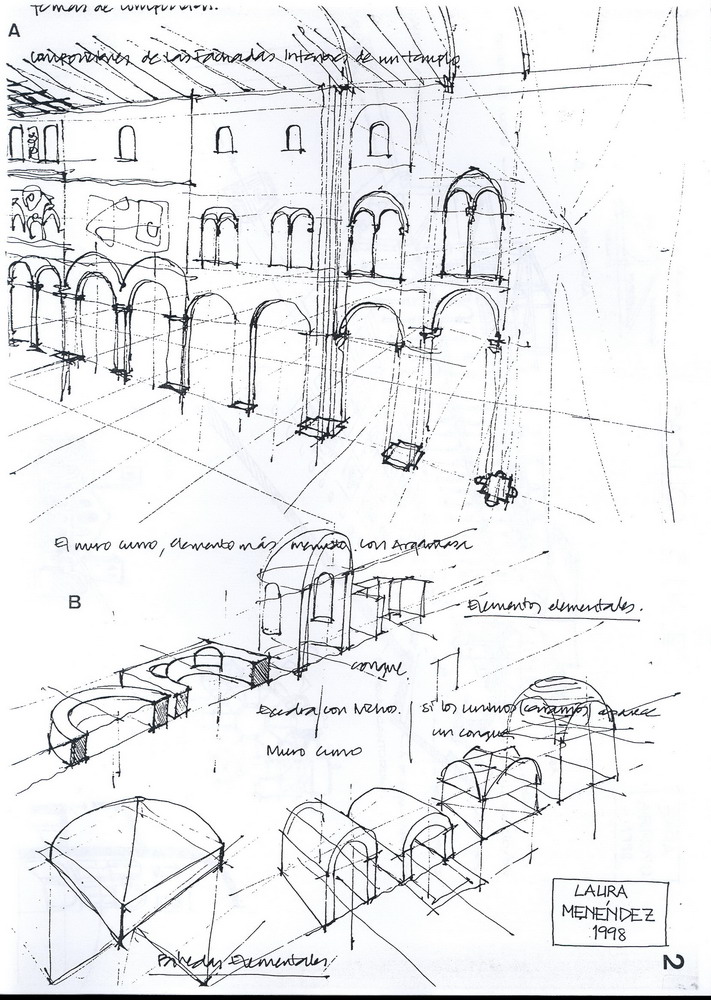 Temas de composición.
A
Composiciones de las Fachadas Internas de un templo
El muro curvo, elemento más con Argamasa
B
Elementos elementales.
conque
Exedra con Nicho.
si los unimos aparece
un conque
Muro curvo
LAURA
MENÉNDEZ
1998
Bóvedas Elementales
2